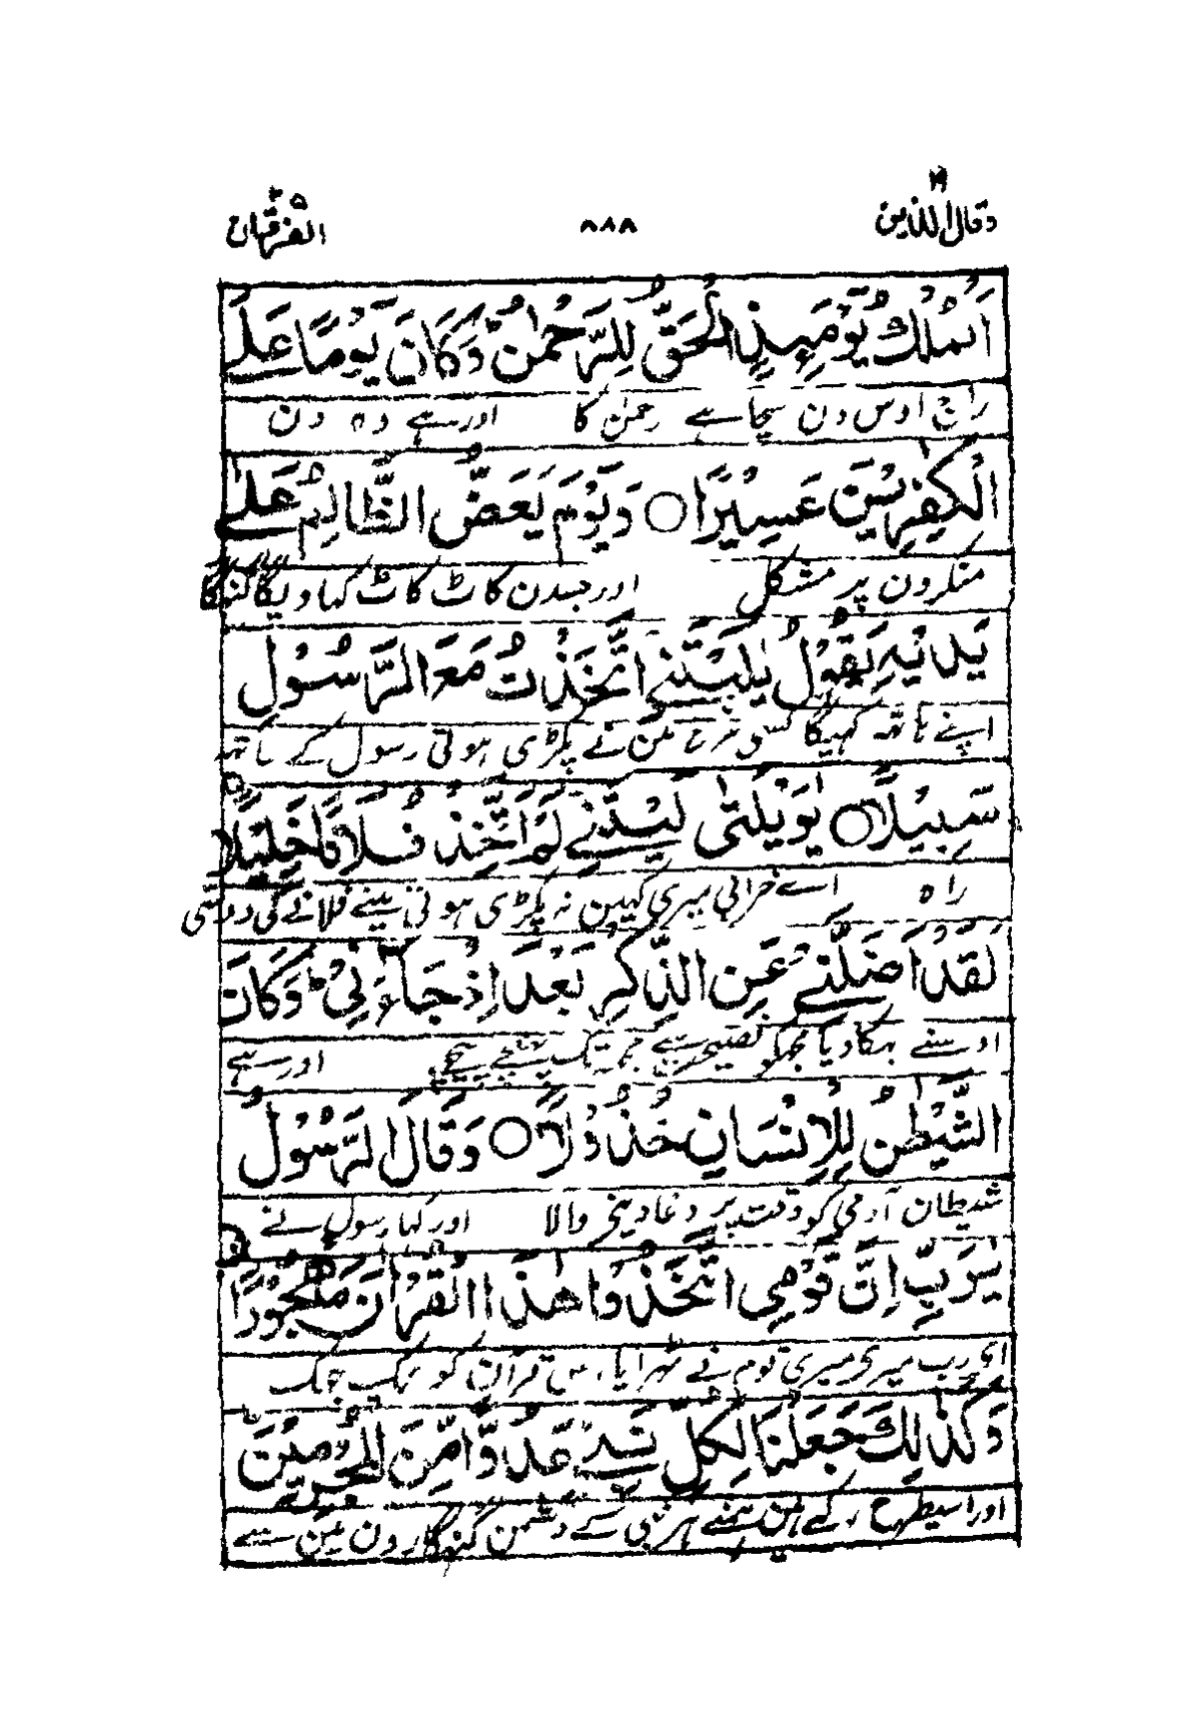 وقال الذین ۱۹
۸۸۸
الفرقان ۲۵
اَلْمُلْكُ یَوْمَىِٕذِ الْحَقُّ لِلرَّحْمٰنِ ؕ وَكَانَ یَوْمًا عَلَی
راج اوس دن سچا ہے رحمن کا اور ہے وہ دن
الْكٰفِرِیْنَ عَسِیْرًا ○ وَیَوْمَ یَعَضُّ الظَّالِمُ عَلٰی
منکرون پر مشکل اور جسدن کاٹ کاٹ کھاویگا گنہگار
یَدَیْهِ یَقُوْلُ یٰلَیْتَنِی اتَّخَذْتُ مَعَ الرَّسُوْلِ
اپنے ہاتھ کہیگا کسی طرح مین نے پکڑی ہوتی رسول کے ساتھ
سَبِیْلًا ○ یٰوَیْلَتٰی لَیْتَنِیْ لَمْ اَتَّخِذْ فُلَانًا خَلِیْلًا
راہ اے خرابی میری کہین نہ پکڑی ہوتی مینے فلانے کی دوستی
لَقَدْ اَضَلَّنِیْ عَنِ الذِّكْرِ بَعْدَ اِذْ جَآءَنِیْ ؕ وَكَانَ
اوسنے بہکا دیا مجھکو نصیحت سے مجھ تک پہنچے پیچھے اور ہے
الشَّیْطٰنُ لِلْاِنْسَانِ خَذُوْلًا ○ وَقَالَ الرَّسُوْلُ
شیطان آدمی کو وقت پر دغا دینے والا اور کہا رسول نے
یٰرَبِّ اِنَّ قَوْمِی اتَّخَذُوْا هٰذَا الْقُرْاٰنَ مَهْجُوْرًا
ای رب میرے میری قوم نے ٹہرایا اس قرآن کو جھک جھک
وَكَذٰلِكَ جَعَلْنَا لِكُلِّ نَبِیٍّ عَدُوًّا مِّنَ الْمُجْرِمِیْنَ
اور اسیطرح رکھے ہین ہمنے ہر نبی کے دشمن گنہگارون مین سے